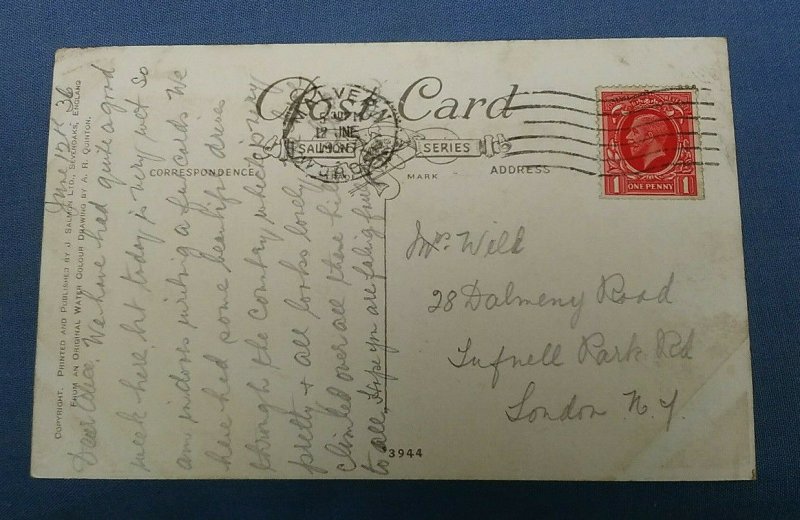 Post Card
SALMON
SERIES
CORRESPONDENCE
MARK
ADDRESS
MALVERN
12 JNE
ONE PENNY
1 1
COPYRIGHT. PRINTED AND PUBLISHED BY J. SALMON LTD., SEVENOAKS, ENGLAND
FROM AN ORIGINAL WATER COLOUR DRAWING BY A. R. QUINTON.
June 12th 36
Dear Alice. We have had quite a good
week here but today is very wet so
am indoors writing a few cards We
have had some beautiful drives
through the country which is very
pretty & all looks lovely
climbed over all these hills
to all, Hope you are feeling
Mrs. Wild
28 Dalmeny Road
Tufnell Park Rd
London N.7.
3944